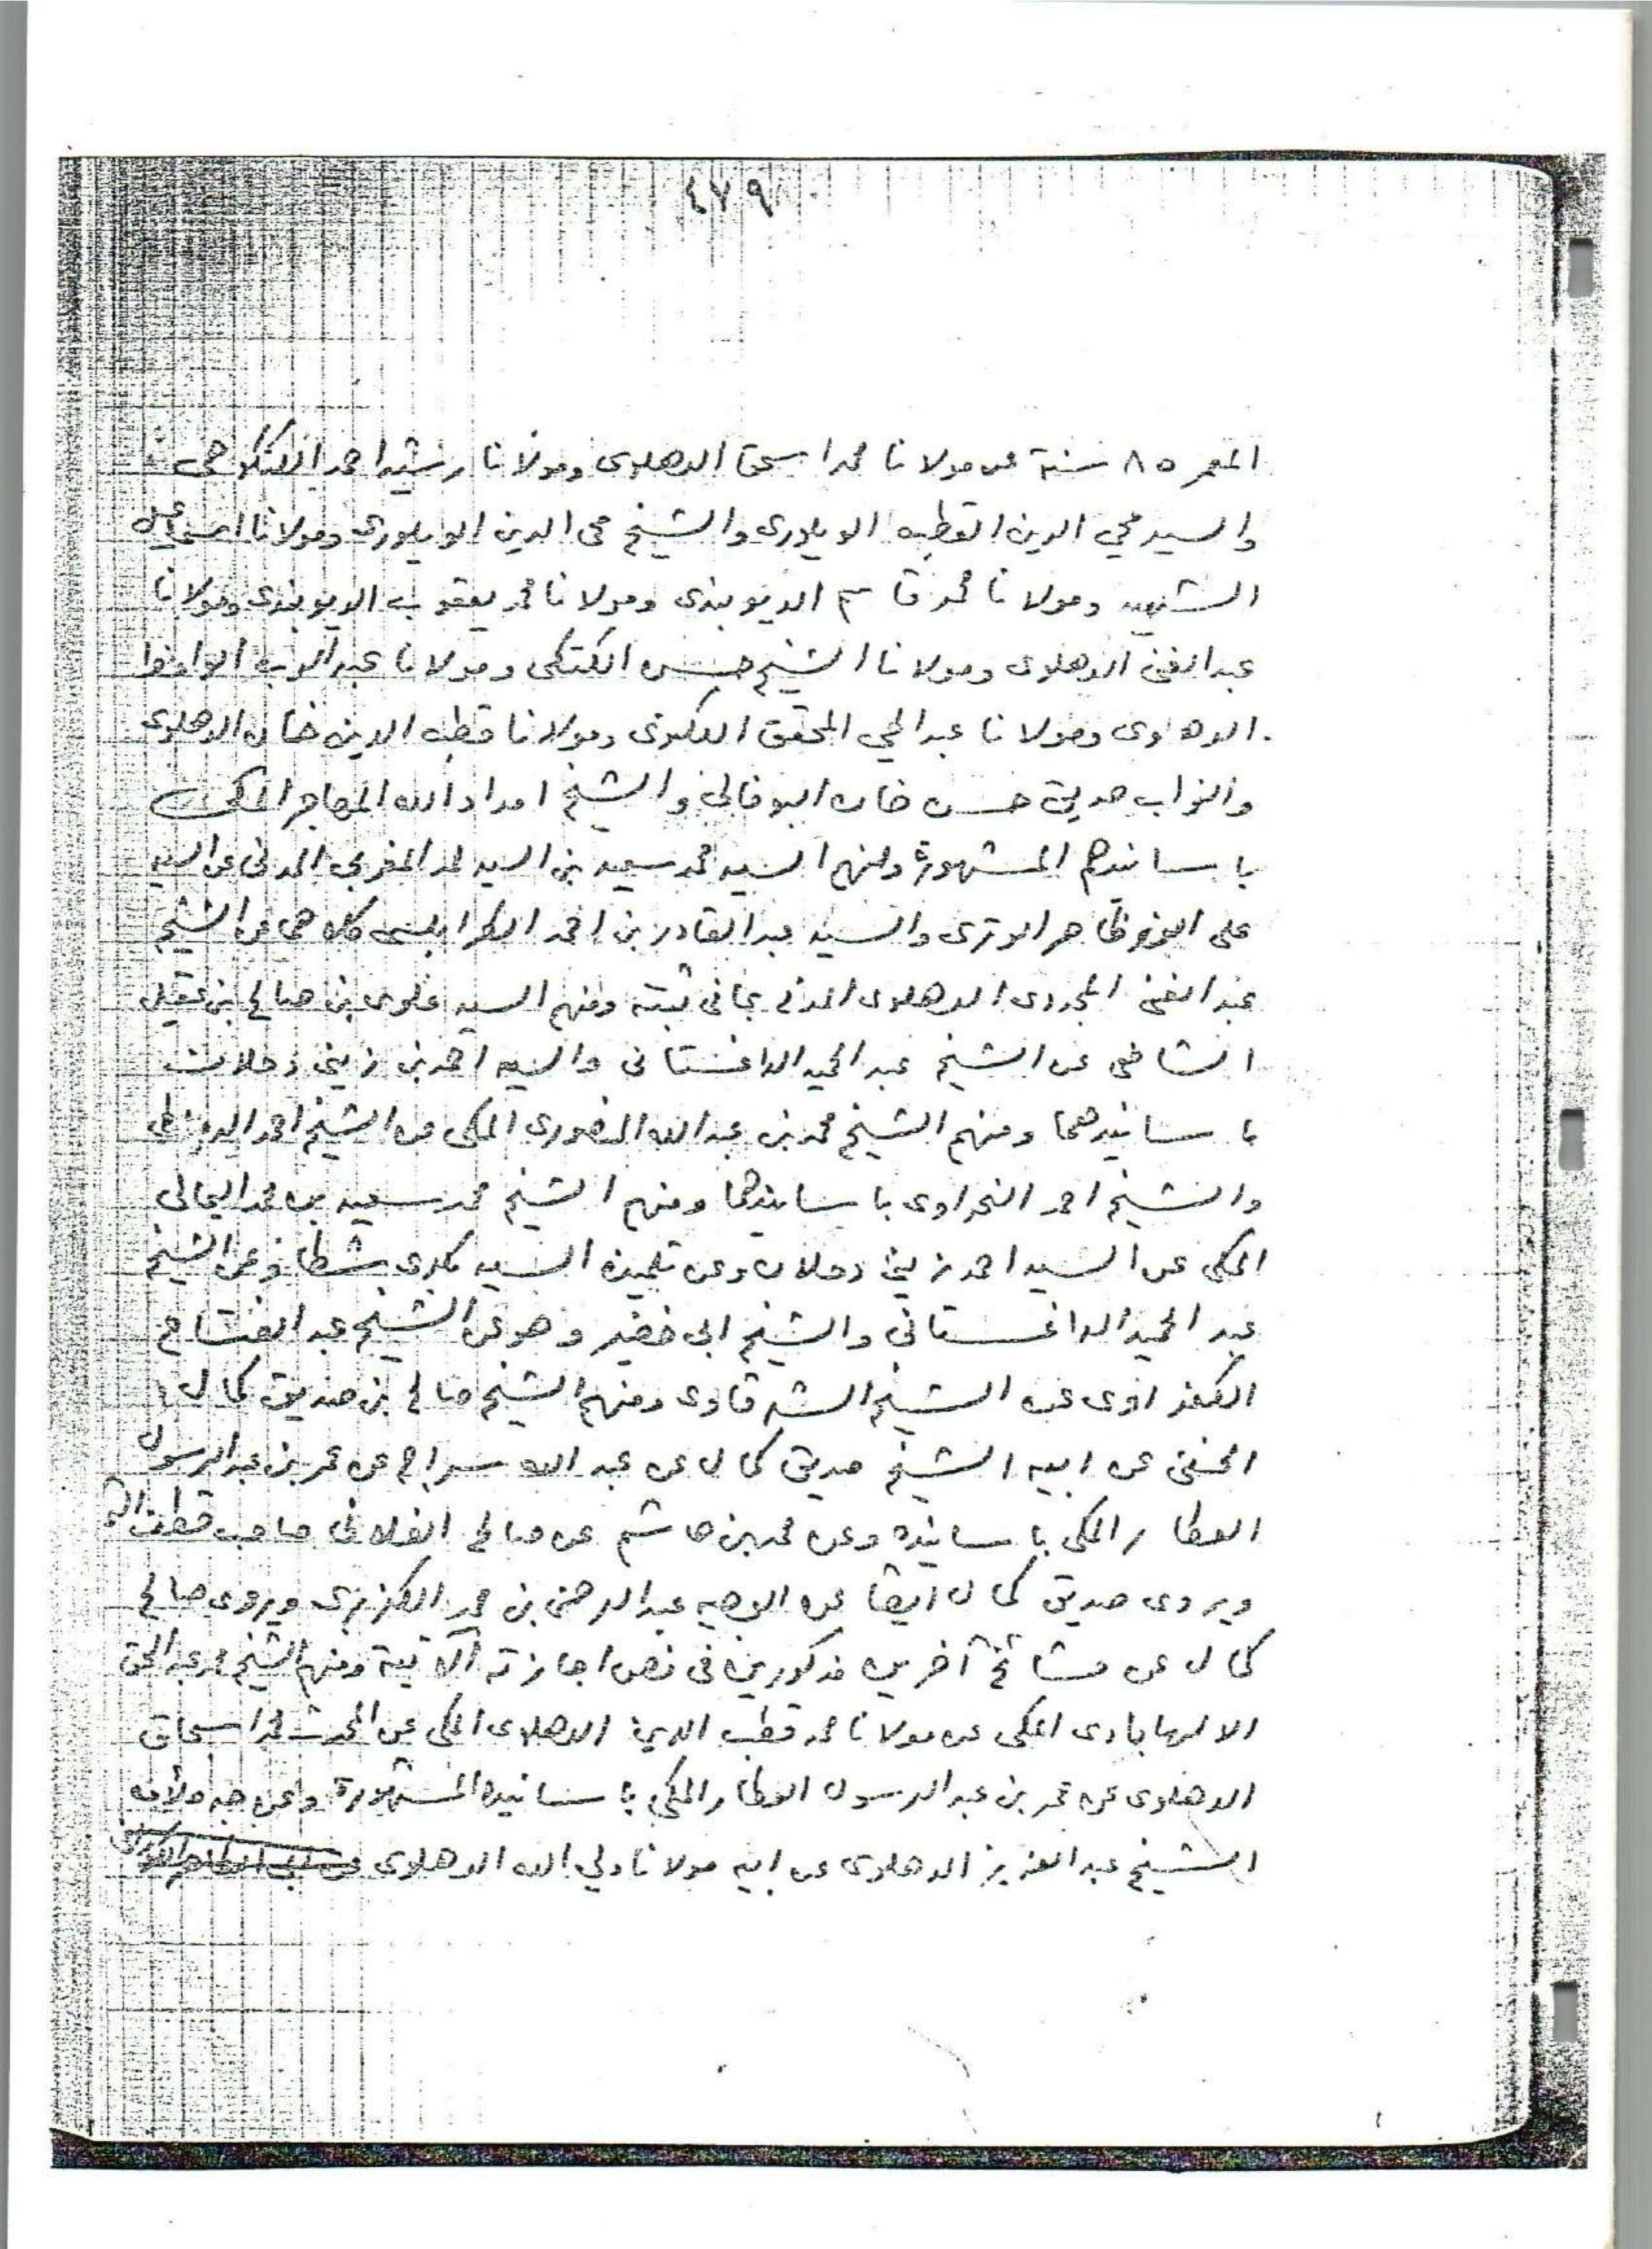 ٤٧٩
المعمر ٨٥ سنة عن مولانا محمد اسحق الدهلوى ومولانا رشيد احمد الكنكوهى
والسيد محي الدين القطب الويلورى والشيخ محى الدين الويلورى ومولانا اسماعيل
الشهيد ومولانا محمد قاسم الديوبندى ومولانا محمد يعقوب الديوبندى ومولانا
عبد الغنى الدهلوى ومولانا الشيخ حسن الكتكى ومولانا عبد الرب الواعظ
الدهلوى ومولانا عبد الحي المحقق اللكنوى ومولانا قطب الدين خان الدهلوى
والنواب صديق حسن خان البوفالى والشيخ امداد الله المهاجر المكى
باسانيدهم المشهورة ومنهم السيد محمد سعيد بن السيد محمد المغربي المدنى عن السيد
على بن ظاهر الوترى والسيد عبد القادر بن احمد الطرابلسى كلاهما عن الشيخ
عبد الغنى المجددى الدهلوى المدنى بما فى ثبته ومنهم السيد علوى بن صالح بن عقيل
الشافعى عن الشيخ عبد الحميد الداغستانى والسيد احمد بن زينى دحلان
باسانيدهما ومنهم الشيخ محمد بن عبد الله المنصورى المكى عن الشيخ احمد
والشيخ احمد النحراوى باسانيدهما ومنهم الشيخ محمد سعيد بن محمد اليمانى
المكى عن السيد احمد زيني دحلان وعن تلميذه السيد بكرى شطا وعن الشيخ
عبد الحميد الداغستانى والشيخ ابى خضير وهو عن الشيخ عبد الفتاح
الكفراوى عن الشيخ الشرقاوى ومنهم الشيخ صالح بن صديق كمال
الحنفى عن ابيه الشيخ صديق كمال عن عبد الله سراج عن عمر بن عبد الرسول
العطار المكى باسانيده وعن محمد بن هاشم عن صالح الفلانى صاحب قطف الثمر
ويروى صديق كمال ايضا عن الوجيه عبد الرحمن بن محمد الكزبرى ويروى صالح
كمال عن مشائخ آخرين مذكورين فى نص اجازته الآتية ومنهم الشيخ محمد عبد الحق
الالهابادى المكى عن مولانا محمد قطب الدين الدهلوى المكى عن المحدث محمد اسحاق
الدهلوى عن عمر بن عبد الرسول العطار المكى باسانيده المشهورة وعن جده لأمه
الشيخ عبد العزيز الدهلوى عن ابيه مولانا ولي الله الدهلوى